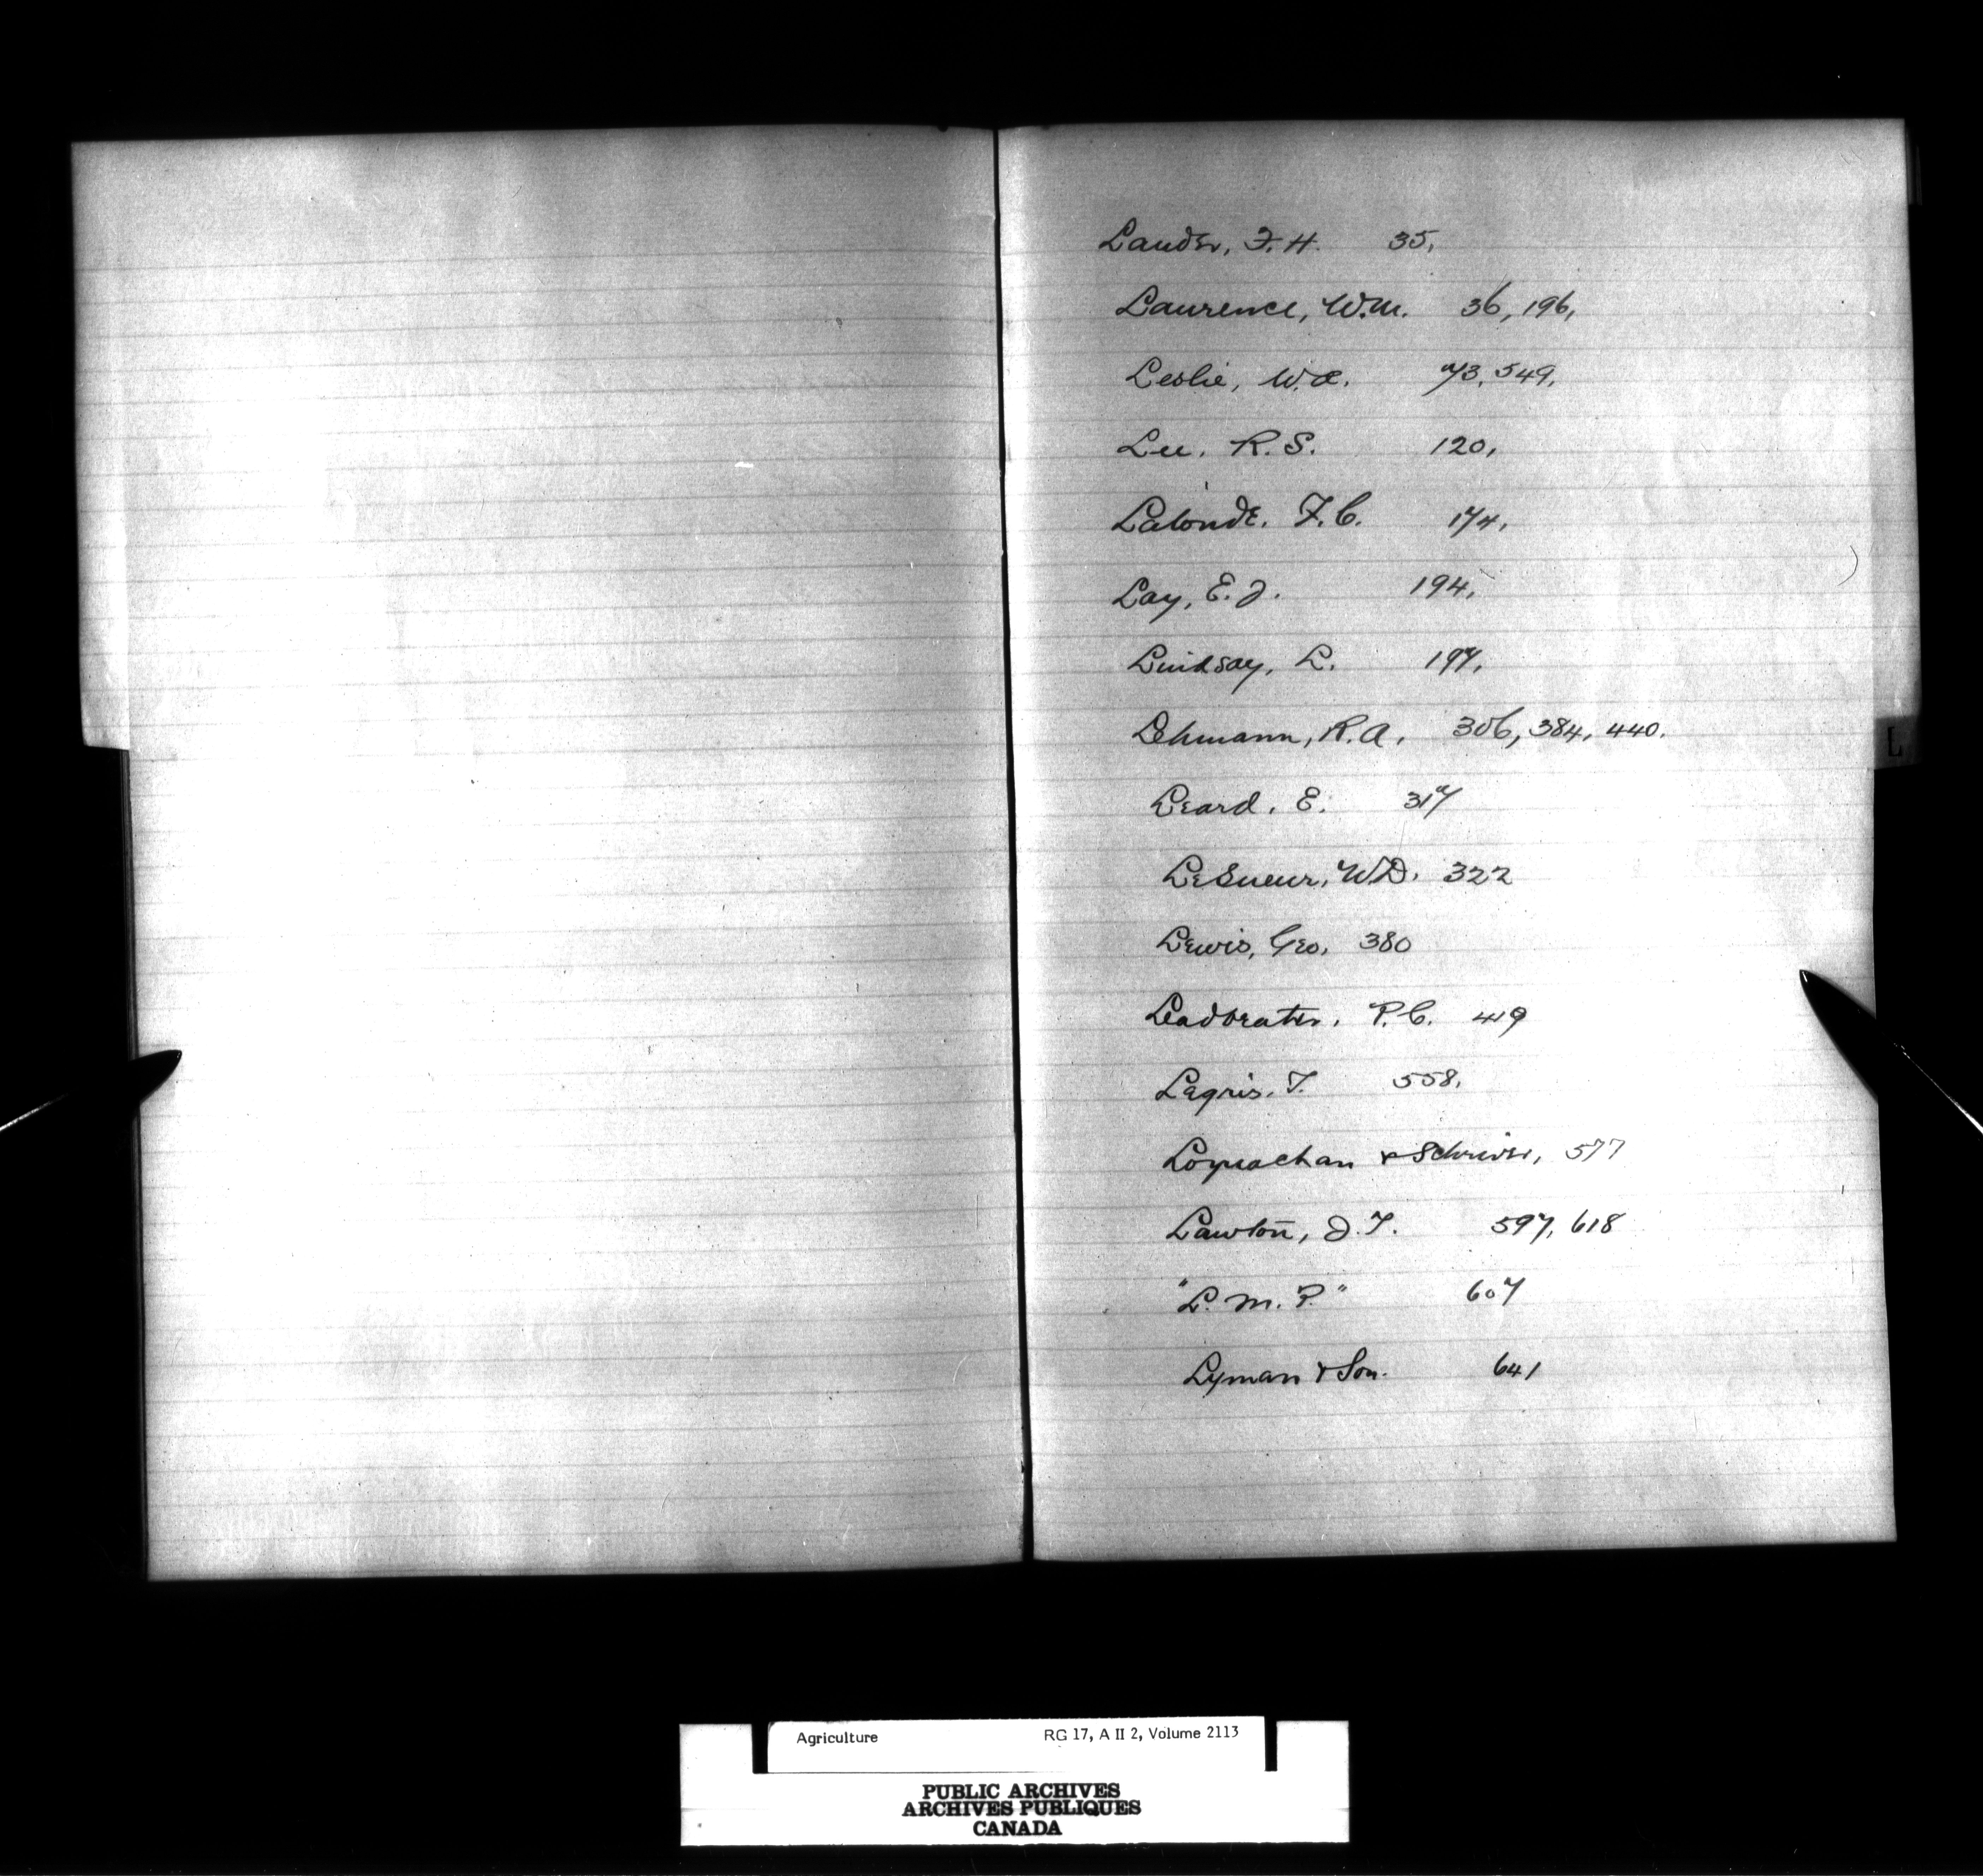 Lauder, F. H. 35,
Laurence, W.M. 36, 196,
Leslie, W.A. 73, 549,
Lee, R. S. 120,
Lalonde, F. C. 174,
Lay, E. J. 194,
Lindsay, L. 197,
Lehmann, R. A. 306, 384, 440.
L
Leard, E. 317
LeSueur, W.D. 322
Lewis, Geo, 380
Leadbeater, P. C. 419
Legris, T. 558,
& Schriver, 577
Lawton, J. T. 597, 618
"L. M. P." 607
Lyman & Son. 641
Agriculture RG 17, A II 2, Volume 2113
PUBLIC ARCHIVES
ARCHIVES PUBLIQUES
CANADA